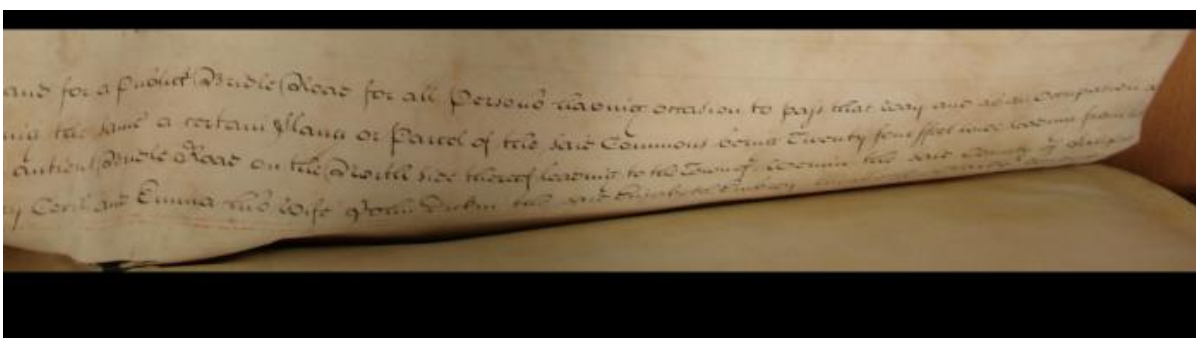 and for a Publick Bridle Road for all Persons having occasion to pass that way and as an Occupation
the same a certain or Parcel of the said Commons being Twenty four ffeet wide leading from
Antient Bridle Road on the North side thereof leading to the Town of the said County of
Cecil and Emma his Wife John the said Elizabeth